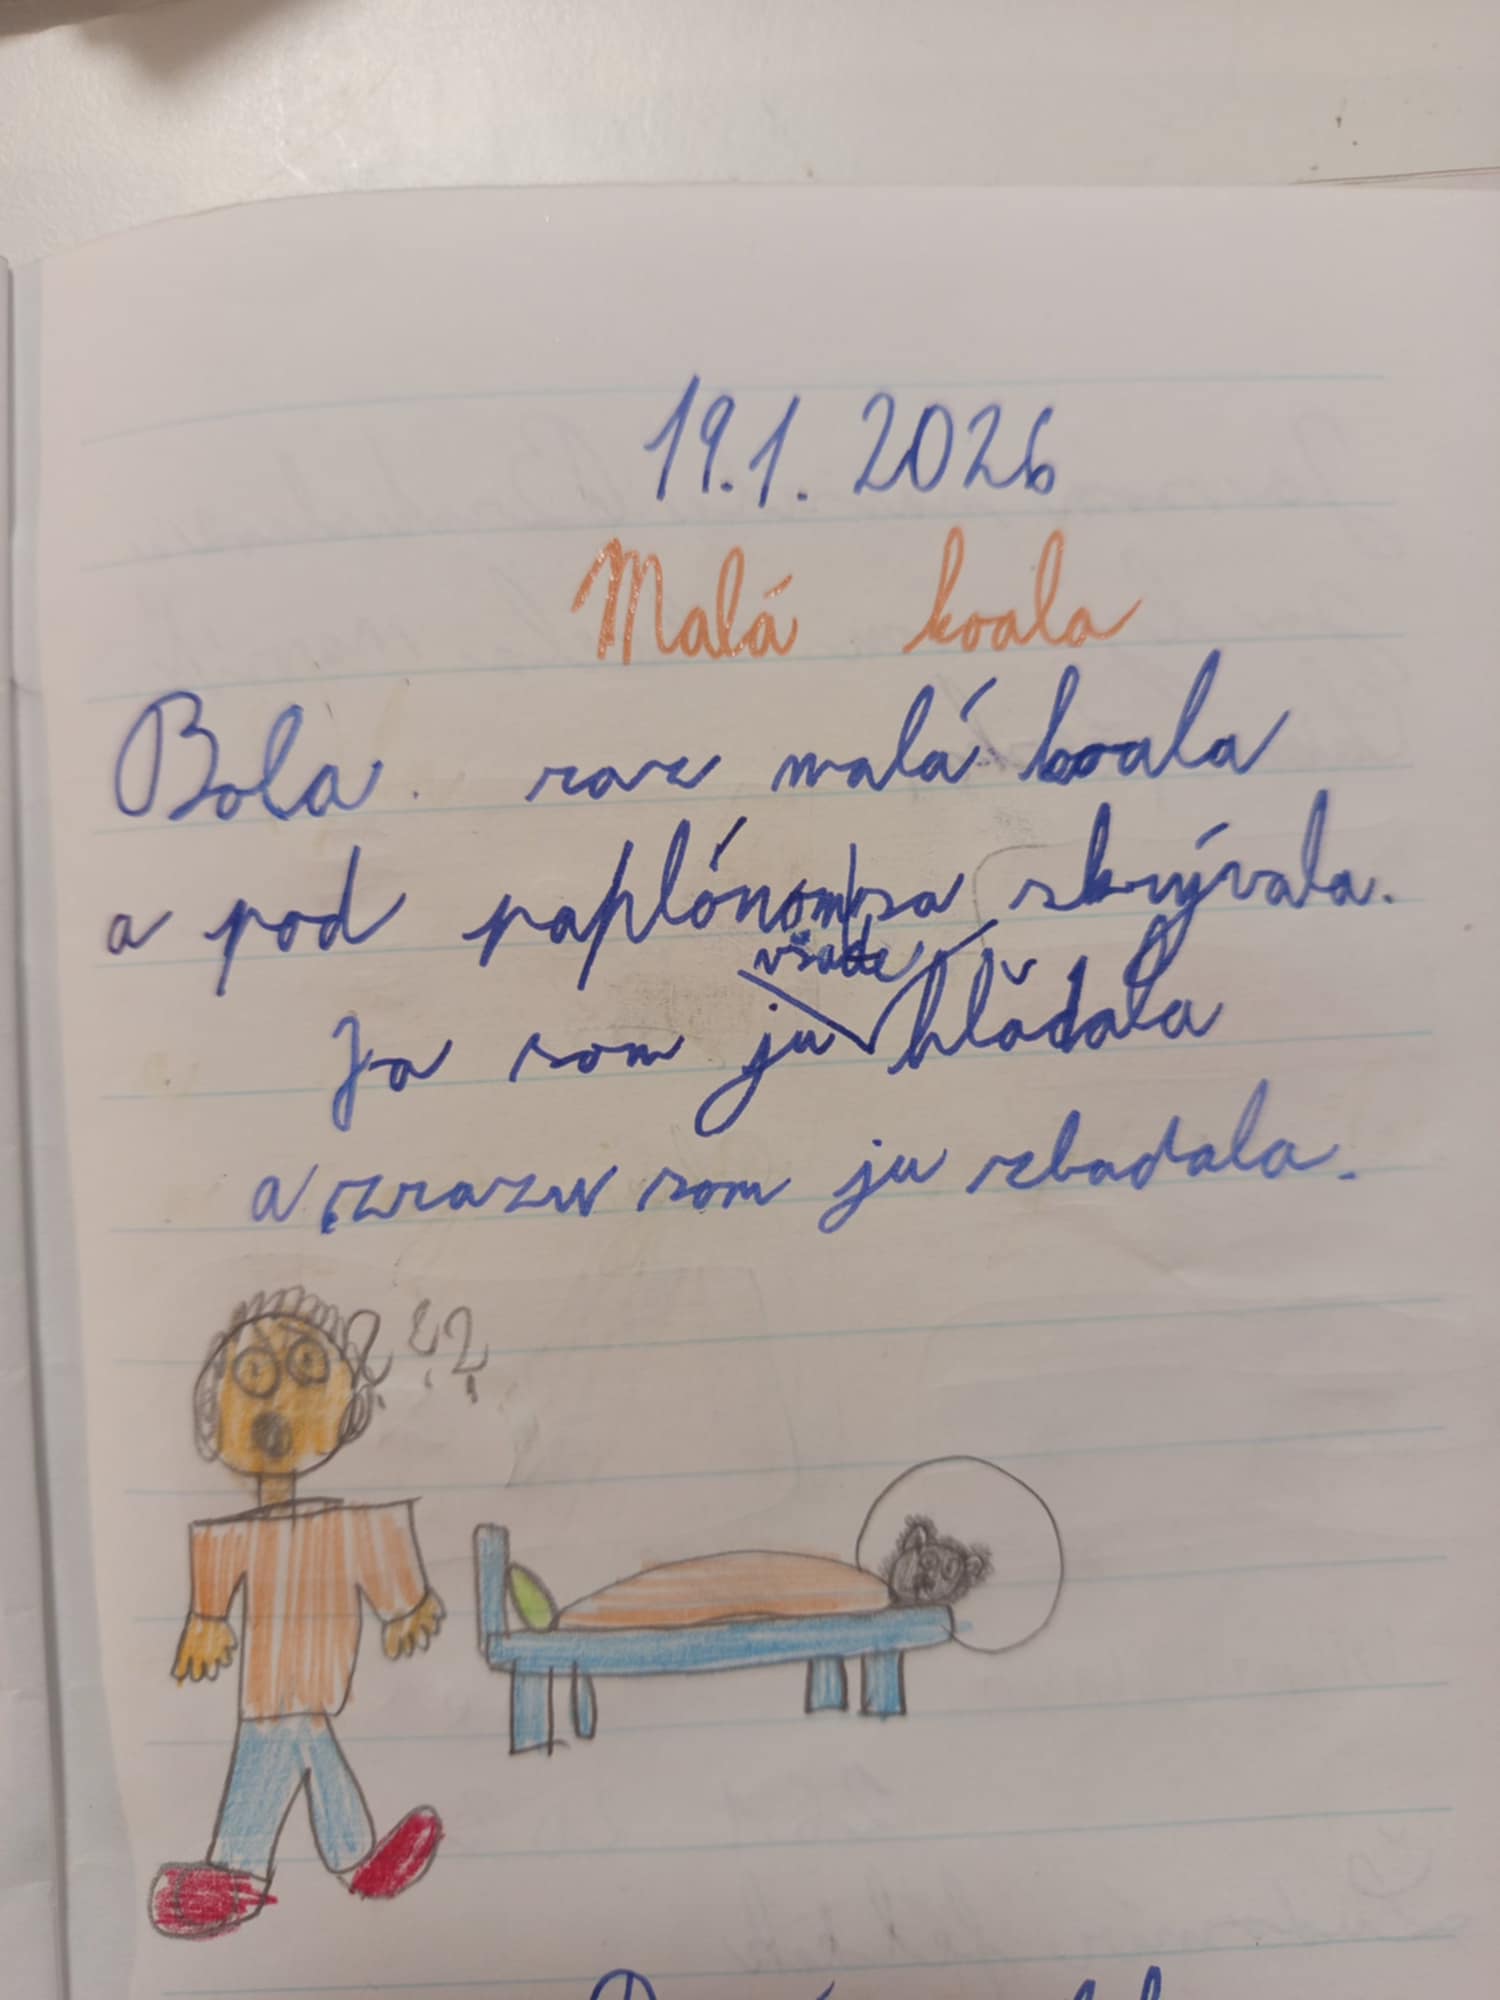 19.1. 2026
Malá koala
Bola raz malá koala
a pod paplónom sa skrývala.
všade
Ja som ju hľadala
a zrazu som ju zbadala.
???